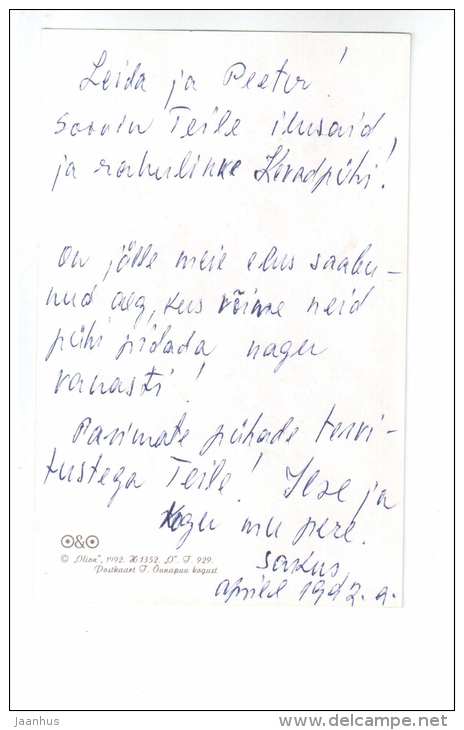 Leida ja Peeter!
Soovin Teile ilusaid
ja rahulikke Kevadpühi!
On jälle meie elus saabu-
nud aeg, kus võime neid
pühi pidada nagu
vanasti!
Parimate pühade tervi-
tustega Teile! Ilse ja
kogu mu pere.
Sakus,
aprill 1992. a.
O&O
© "Olion", 1992. H 1352. "O". T. 929.
Postkaart T. Õunapuu kogust
jaanhus
www.delcampe.net